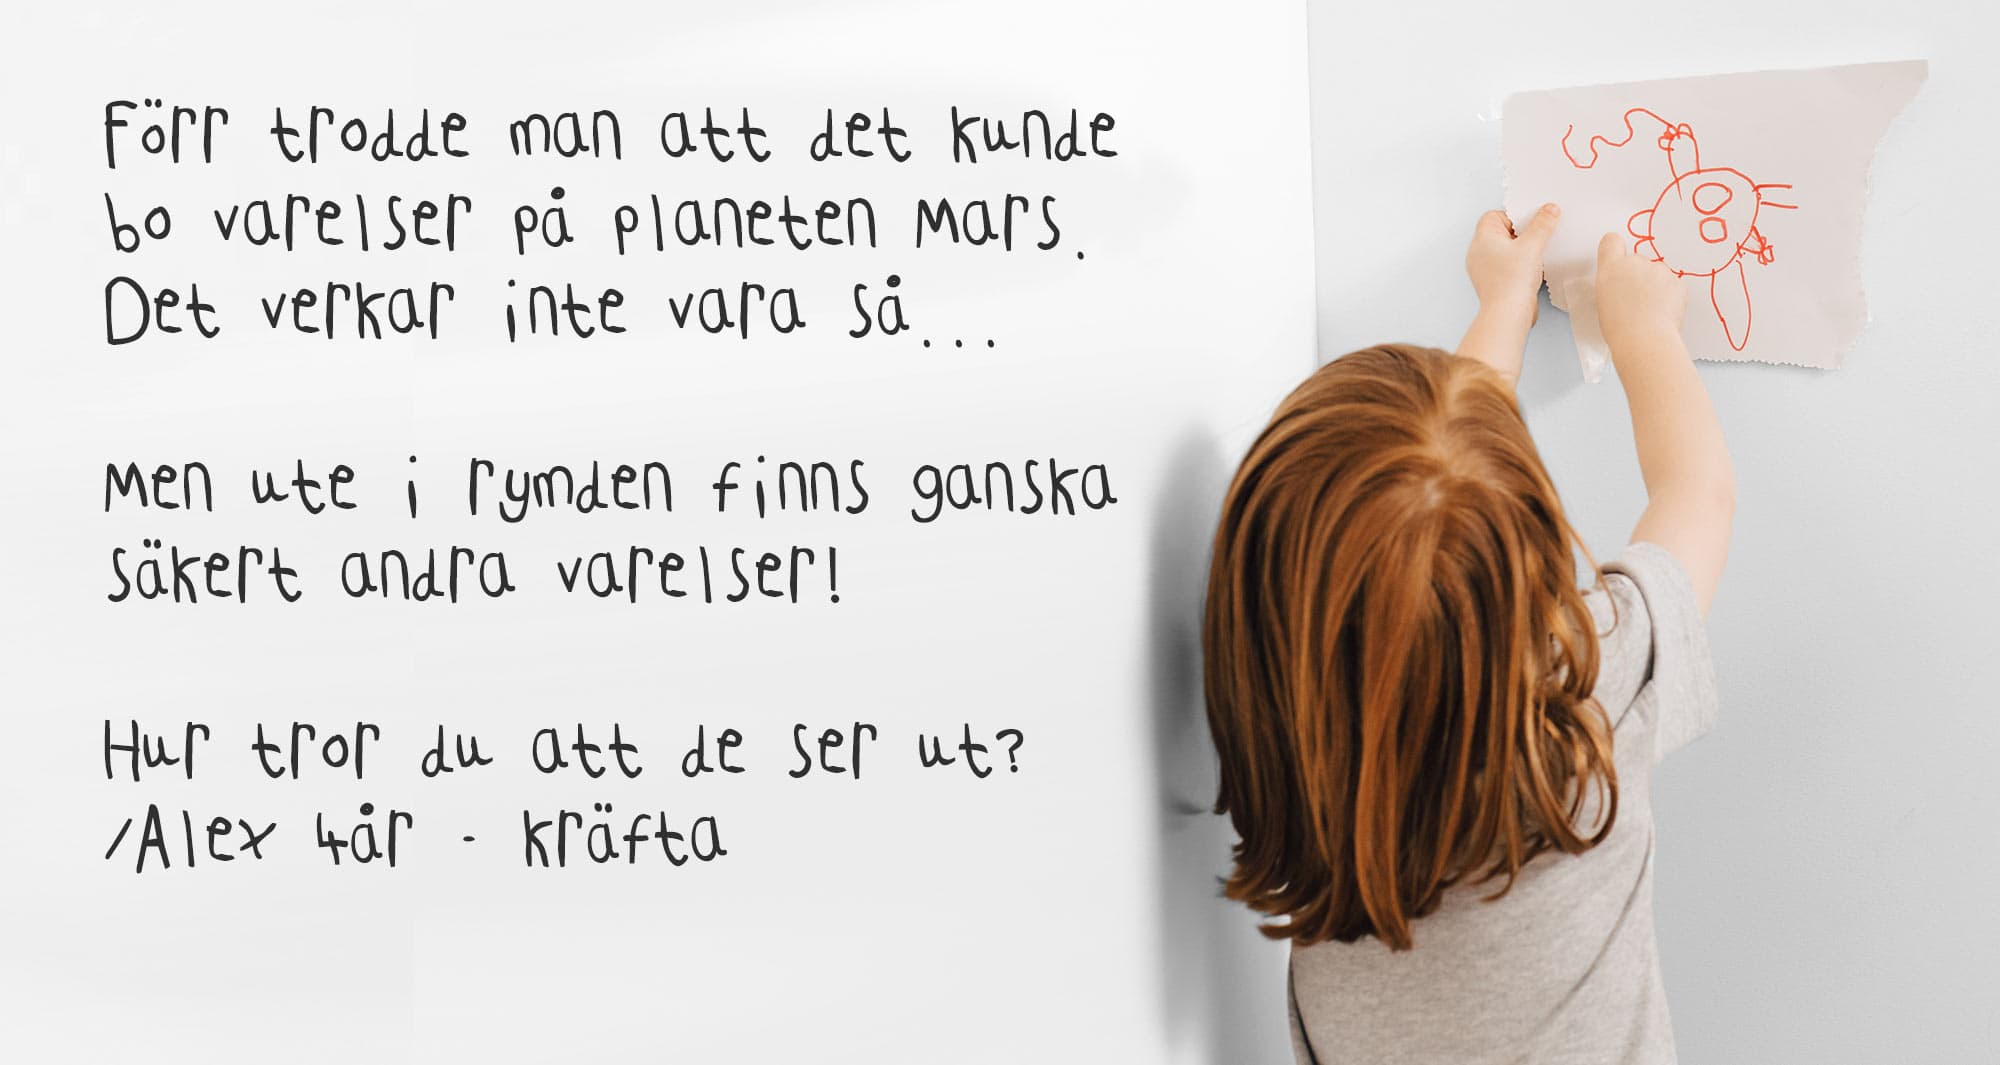 Förr trodde man att det kunde
bo varelser på planeten Mars.
Det verkar inte vara så...
Men ute i rymden finns ganska
säkert andra varelser!
Hur tror du att de ser ut?
/Alex 4år - kräfta